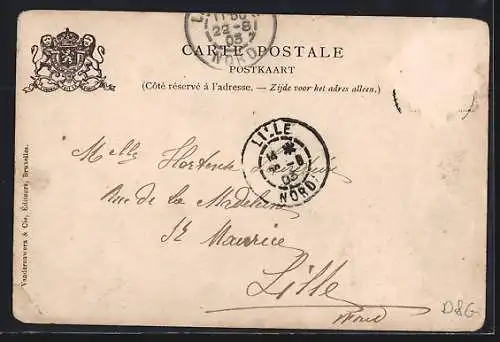 CARTE POSTALE
POSTKAART
(Côté réservé à l'adresse. — Zijde voor het adres alleen.)
22-8
03
NORD
LILLE
03
NORD
Melle Hortense
Rue de la Madeleine
St Maurice
Lille
Nord
D&G
Vanderauwera & Cie, Éditeurs, Bruxelles.